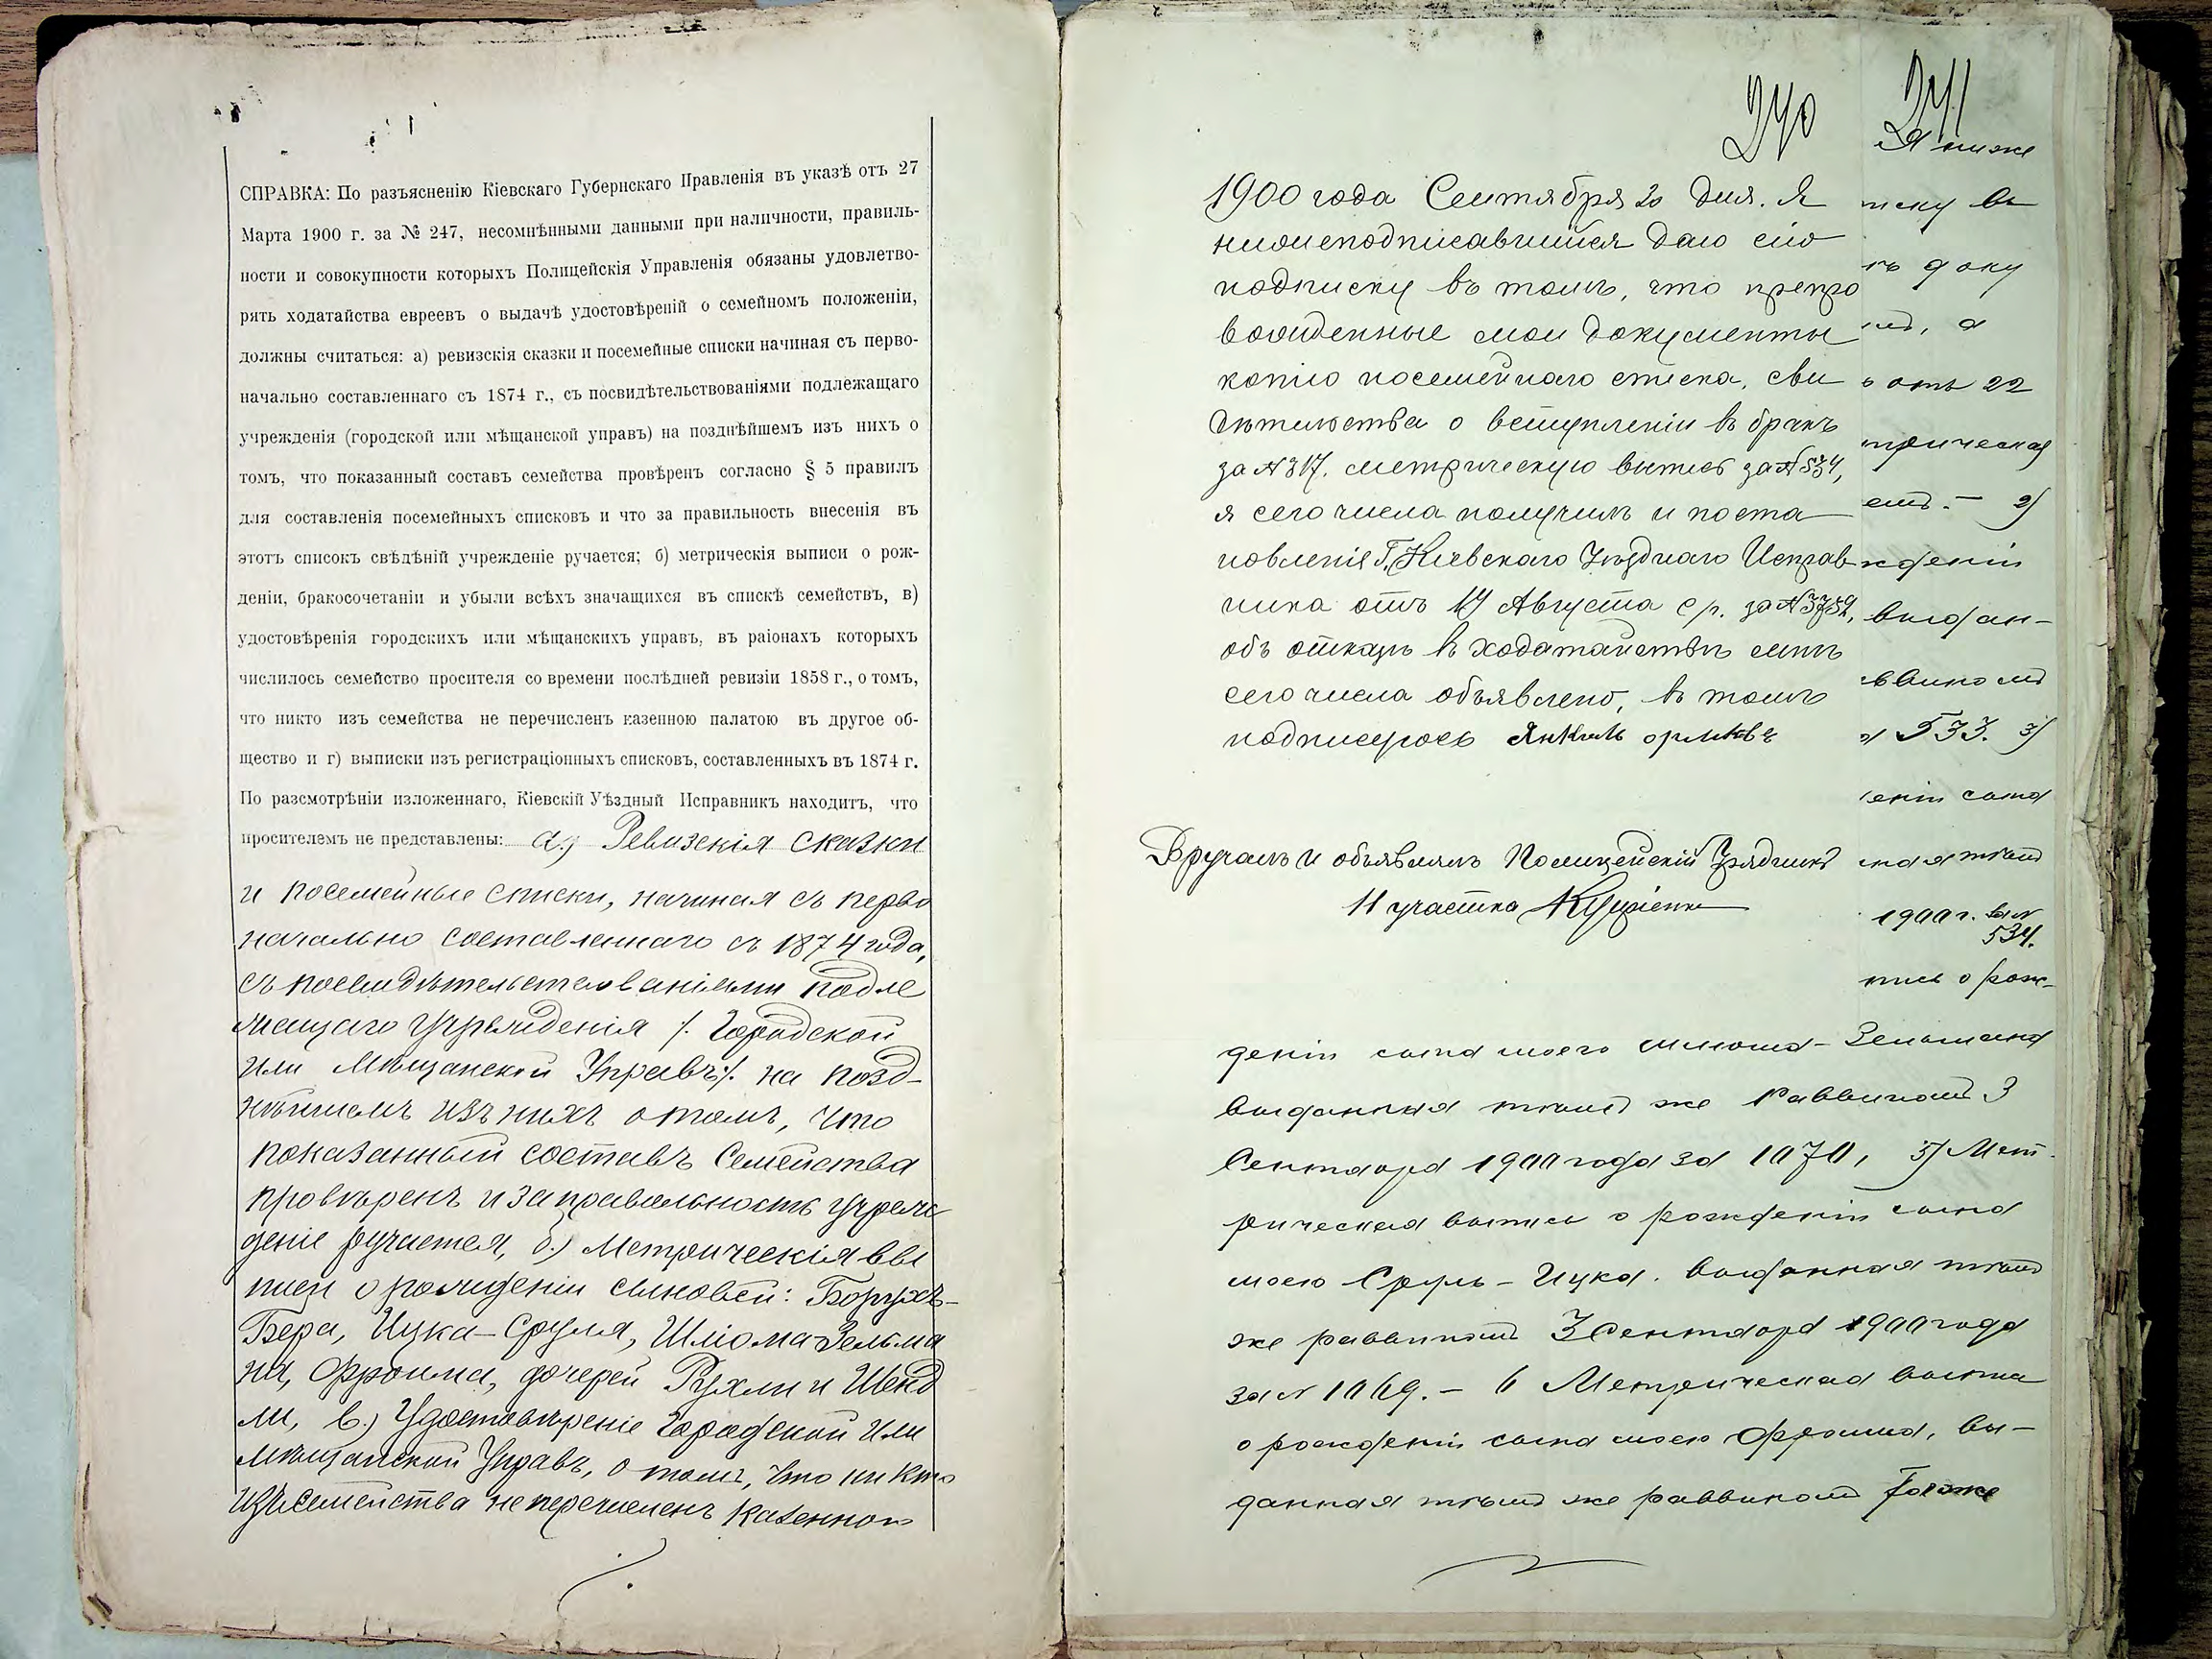 СПРАВКА: По разъясненію Кіевскаго Губернскаго Правленія въ указѣ отъ 27
Марта 1900 г. за № 247, несомнѣнными данными при наличности, правиль-
ности и совокупности которыхъ Полицейскія Управленія обязаны удовлетво-
рять ходатайства евреевъ о выдачѣ удостовѣреній о семейномъ положеніи,
должны считаться: а) ревизскія сказки и посемейные списки начиная съ перво-
начально составленнаго съ 1874 г., съ посвидѣтельствованіями подлежащаго
учрежденія (городской или мѣщанской управъ) на позднѣйшемъ изъ нихъ о
томъ, что показанный составъ семейства провѣренъ согласно § 5 правилъ
для составленія посемейныхъ списковъ и что за правильность внесенія въ
этотъ списокъ свѣдѣній учрежденіе ручается; б) метрическія выписи о рож-
деніи, бракосочетаніи и убыли всѣхъ значащихся въ спискѣ семействъ, в)
удостовѣренія городскихъ или мѣщанскихъ управъ, въ раіонахъ которыхъ
числилось семейство просителя со времени послѣдней ревизіи 1858 г., о томъ,
что никто изъ семейства не перечисленъ казенною палатою въ другое об-
щество и г) выписки изъ регистраціонныхъ списковъ, составленныхъ въ 1874 г.
По разсмотрѣніи изложеннаго, Кіевскій Уѣздный Исправникъ находитъ, что
просителемъ не представлены: а.) Ревизскія сказки
и посемейные списки, начиная съ перво
начально составленнаго съ 1874 года,
съ посвидѣтельствованіями подле
жащаго учрежденія /. Городской
или Мѣщанской Управъ/. на позд-
нѣйшемъ изъ нихъ о томъ, что
показанный составъ семейства
провѣренъ и за правильность учреж
деніе ручается, б.) Метрическія вы
писи о рожденіи сыновей: Борухъ-
Бера, Ицка-Сруля, Шліома-Зельма
на, Фроима, дочерей Рухли и Шенд
ли, в.) Удостовѣреніе Городской или
Мѣщанской Управъ, о томъ, что ни кто
изъ семейства не перечисленъ казенною
240
1900 года Сентября 20 дня. Я
нижеподписавшийся даю сію
подписку въ томъ, что препро
вожденные мои документы
копію посемейнаго списка, сви
дѣтельства о вступленіи въ бракъ
за № 317. метрическую выпись за № 534,
я сего числа получилъ и поста
новленія Г. Кіевскаго Уѣзднаго Исправ
ника отъ 17 Августа с. г. за №
объ отказѣ въ ходатайствѣ мнѣ
сего числа объявлено, въ томъ
подписуюсь Янкель
Вручилъ и объявилъ Полицейскій Урядникъ
11 участка
241
Я ниже
писку въ
ъ доку
мъ, а
о отъ 22
трическая
емъ. - 2)
жденіи
выдан-
ввиномъ
№ 533. 3)
еніи сына
ная тѣмъ
1900 г. за №
534.
пись о рож-
деніи сына моего Шліома-Зельмана
выданная тѣмъ же Раввиномъ 3
Сентября 1900 года за 1070, 5) Мет-
рическая выпись о рожденіи сына
моего Сруль-Ицка. выданная тѣмъ
же раввиномъ 3 Сентября 1900 года
за № 1069. - 6 Метрическая выпись
о рожденіи сына моего Фроима, вы-
данная тѣмъ же раввиномъ